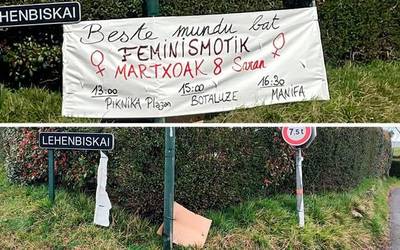 EHENBISKAI
Beste mundu bat
FEMINISMOTIK
MARTXOAK 8 Sᴀʀᴀɴ
13:00 15:00 16:30
PIKNIKA Plazan BOTALUZE MANIFA
LEHENBISKAI
7,5t